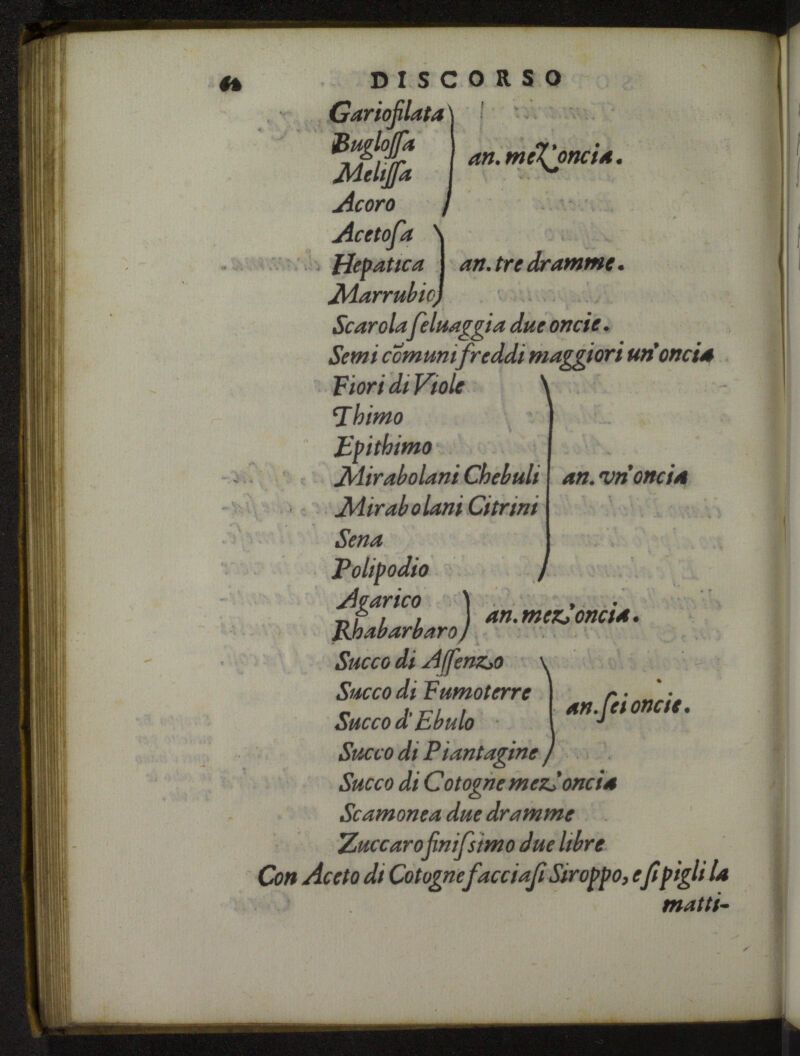 DISCORSO
Gariofilata
Bugloſſa
Meliſſa
an. mez'oncia.
Acoro
Acetoſa
Hepatica an. tre dramme.
Marrubio
Scarola ſeluaggia due oncie.
Semi cōmuni freddi maggiori un'oncia
Fiori di Viole
Thimo
Epithimo
Mirabolani Chebuli an. vn'oncia
Mirabolani Citrini
Sena
Polipodio
Agarico
Rhabarbaro
an. mez'oncia.
Succo di Aſſenzo
Succo di Fumoterre
Succo d'Ebulo
an. ſei oncie.
Succo di Piantagine
Succo di Cotogne mez'oncia
Scamonea due dramme
Zuccaro finiſsimo due libre
Con Aceto di Cotogne facciaſi Siroppo, e ſi pigli la
matti-